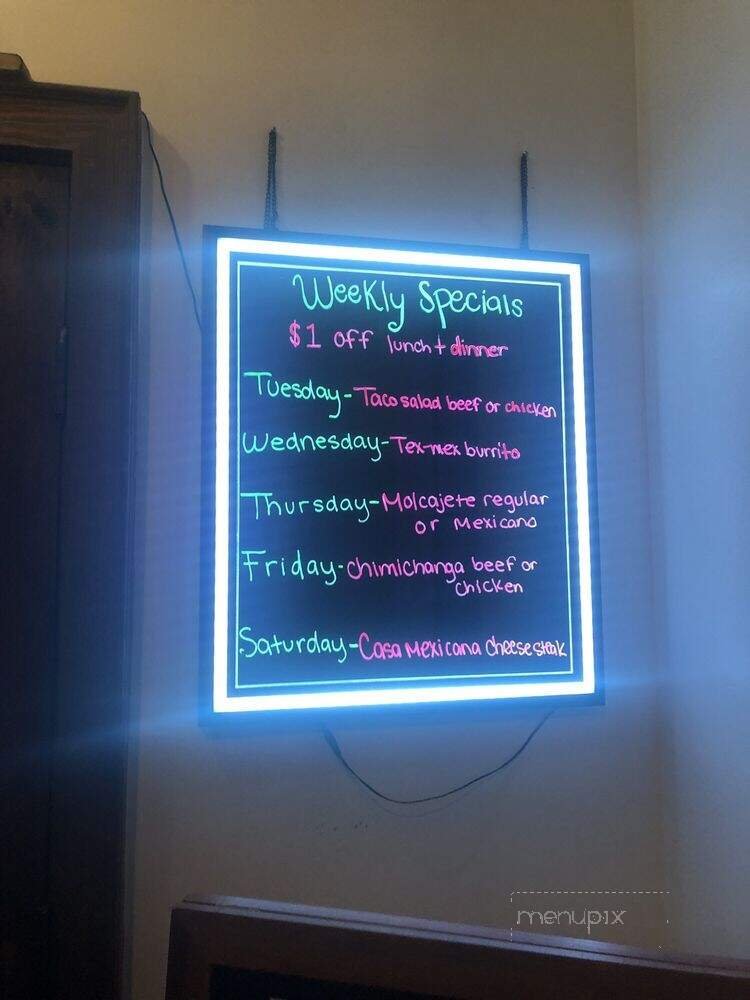 Weekly Specials
$1 off lunch + dinner
Tuesday - Taco salad beef or chicken
Wednesday - Tex-mex burrito
Thursday - Molcajete regular
or Mexicano
Friday - chimichanga beef or
chicken
Saturday - Casa Mexicana cheese steak
menupix